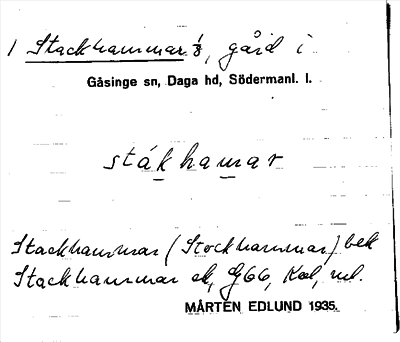 1 Stackhammar 1/8, gård i
Gåsinge sn, Daga hd, Södermanl. l.
stákhamar
Stackhammar (Stockhammar) bek
Stackhammar ek, G66, Kal, ml.
MÅRTEN EDLUND 1935.